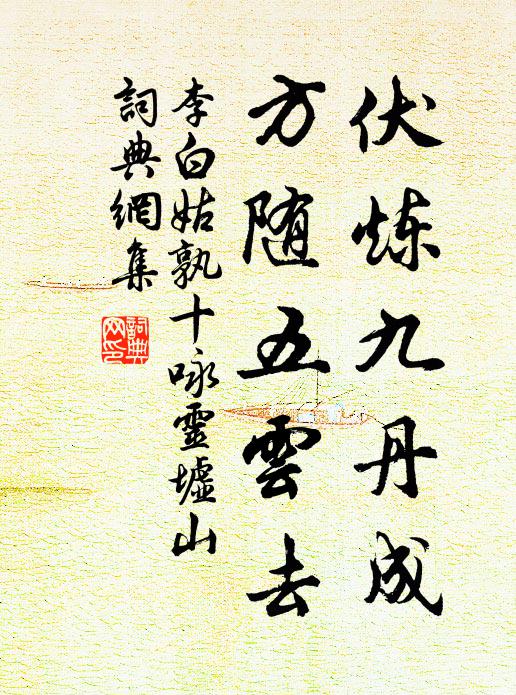 伏炼九丹成
方随五雲去
李白姑孰十咏靈墟山
詞典網集
詞典网印